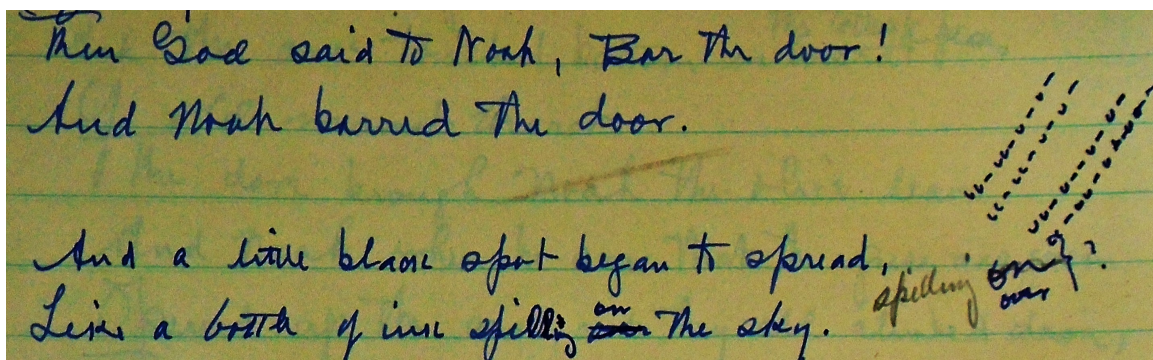 Then God said to Noah, Bar the door!
And Noah barred the door.
And a little black spot began to spread,
Like a bottle of ink spilling on the sky.
spilling on ?
over